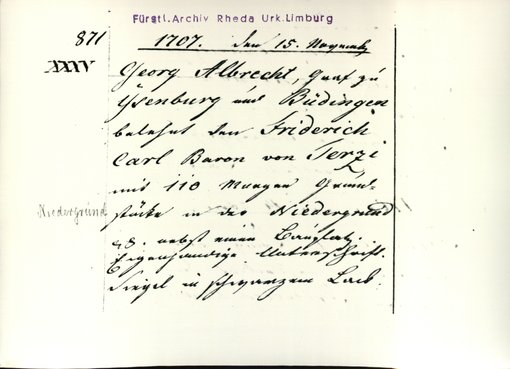 Fürstl. Archiv Rheda Urk. Limburg
871 1707. den 15. Novemb.
XXXIV
Georg Albrecht, Graf zu
Ysenburg und Büdingen
belehnt den Friderich
Carl Baron von Terzi
mit 110 Morgen Grund-
Niedergrund stücke in der Niedergrund
nebst einem Bauplatz.
Eigenhändige Unterschrift.
Siegel in schwarzem Lack.